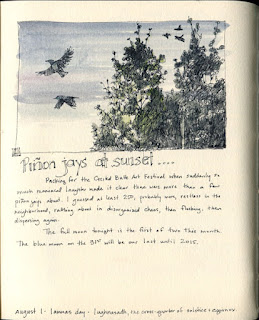 Piñon jays at sunset ....
Packing for the Crested Butte Art Festival when suddenly so
much maniacal laughter made it clear there were more than a few
piñon jays about. I guessed at least 250, probably more, restless in the
neighborhood, rattling about in disorganized chaos, then flocking, then
dispersing again.
The full moon tonight is the first of two this month.
The blue moon on the 31st will be our last until 2015.
August 1 - Lammas day - Lughnasadh, the cross-quarter of solstice + equinox